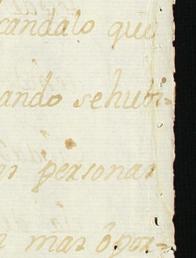 candalo que
ando sehubi-
s personas
mas ôpor-